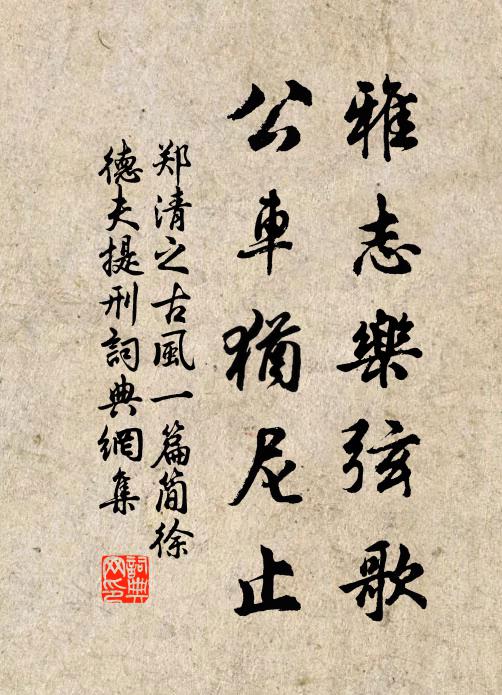 雅志樂弦歌
公車猶尼止
郑清之古風一篇简徐
德夫提刑詞典網集
詞典网印